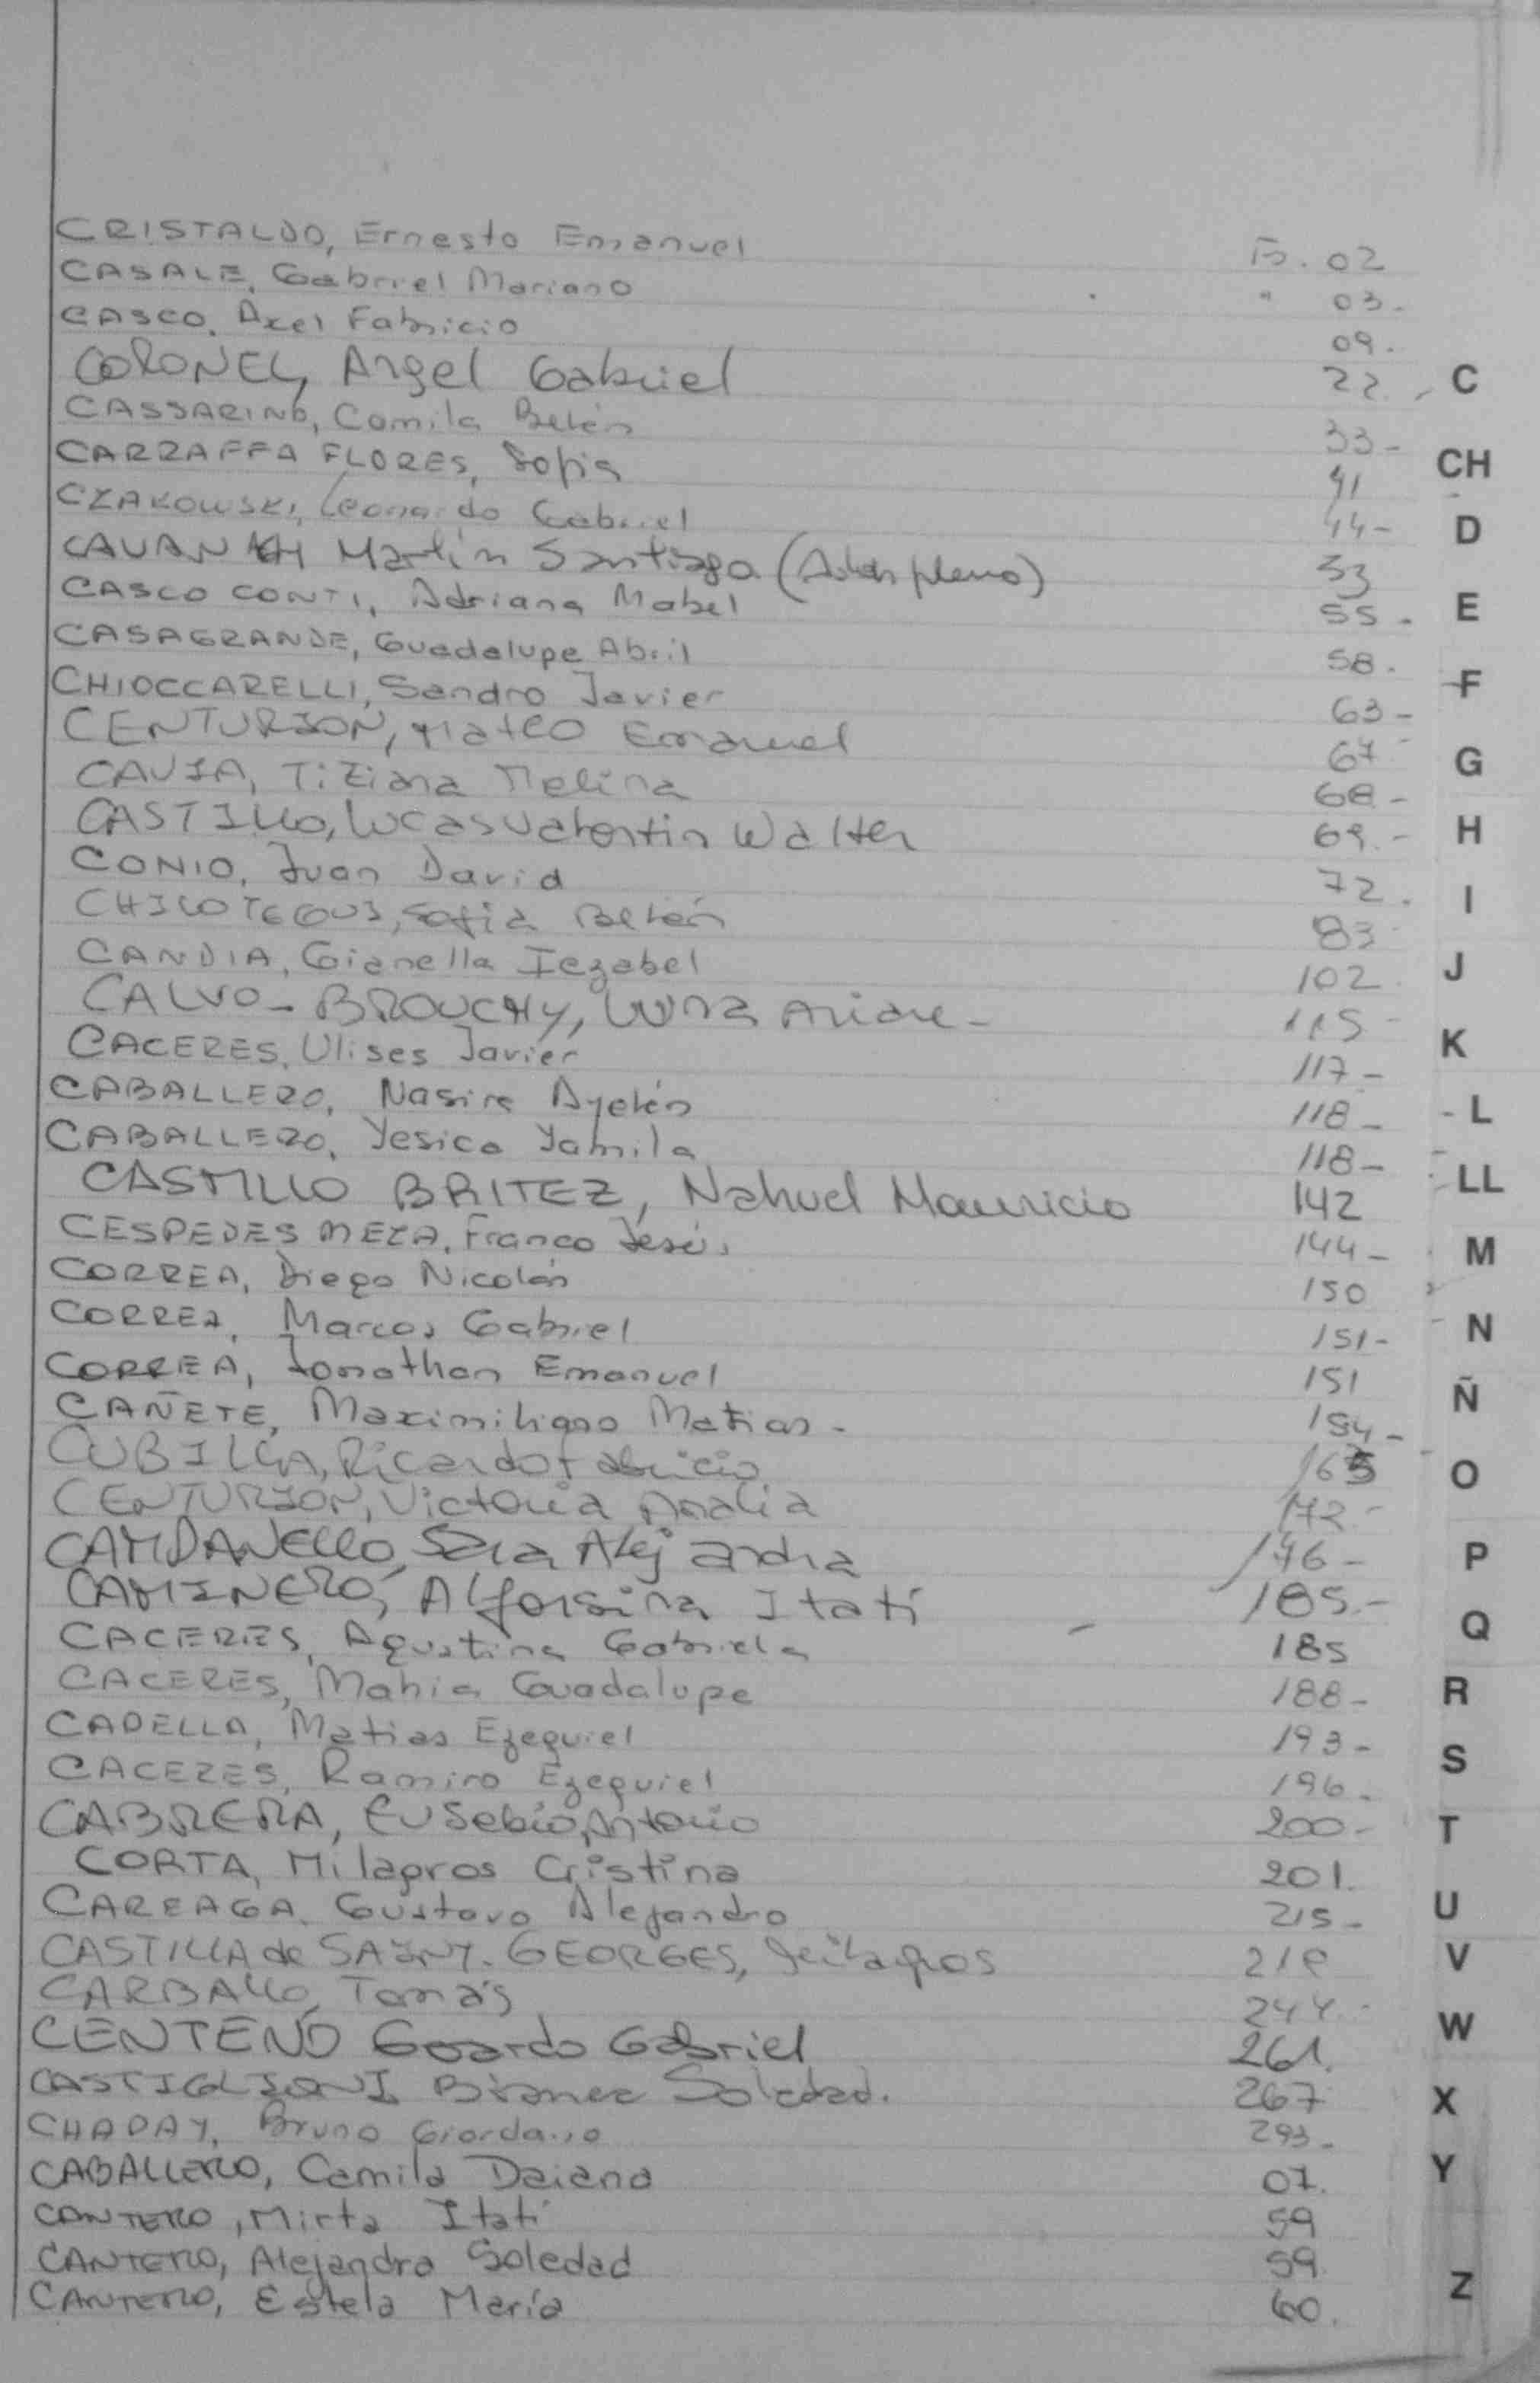 CRISTALDO, Ernesto Emanuel Fo. 02
CASALE, Gabriel Mariano " 03-
CASCO, Axel Fabricio 09.
CORONEL, Angel Gabriel 22. C
CASSARINO, Camila Belén 33-
CARRAFFA FLORES, Sofia 41 CH
CZAKOWSKI, Leonardo Gabriel 44- D
CAVANAGH Martín Santiago (Adop. plena) 53
CASCO CONTI, Adriana Mabel 55. E
CASAGRANDE, Guadalupe Abril 58.
CHIOCCARELLI, Sandro Javier 63- F
CENTURION, Mateo Emanuel 67
CAVIA, Tiziana Melina 68- G
CASTILLO, Lucas Valentin Walter 69.- H
CONIO, Juan David 72. I
CHILOTEGUI, Sofia Belén 83
CANDIA, Gianella Iezabel 102. J
CALVO-BROUCHY, Luna Ariane- 115-
CACERES, Ulises Javier 117- K
CABALLERO, Nasira Ayelén 118- L
CABALLERO, Yesica Yamila 118-
CASTILLO BRITEZ, Nahuel Mauricio 142 LL
CESPEDES MEZA, Franco Jesús 144- M
CORREA, Diego Nicolás 150
CORREA, Marcos Gabriel 151- N
CORREA, Jonathan Emanuel 151 Ñ
CAÑETE, Maximiliano Matias- 154-
CUBILLA, Ricardo Fabricio 165 O
CENTURION, Victoria Analia 172-
CAMPANELLO, Sara Alejandra 176- P
CAMINERO, Alfonsina Itatí 185.-
CACERES, Agustina Gabriela 185 Q
CACERES, Mahia Guadalupe 188- R
CADELLA, Matias Ezequiel 193-
CACERES, Ramiro Ezequiel 196. S
CABRERA, Eusebio Antonio 200- T
CORTA, Milagros Cristina 201.
CAREAGA, Gustavo Alejandro 215- U
CASTILLA de SAINT-GEORGES, Milagros 219 V
CARBALLO, Tomás 244-
CENTENO Gerardo Gabriel 261. W
CASTIGLIONI Soledad. 267
CHAPAY, Bruno Giordano 293- X
CABALLERO, Camila Daiana 07. Y
CANTERO, Mirta Itatí 59
CANTERO, Alejandra Soledad 59
CANTERO, Estela María 60. Z